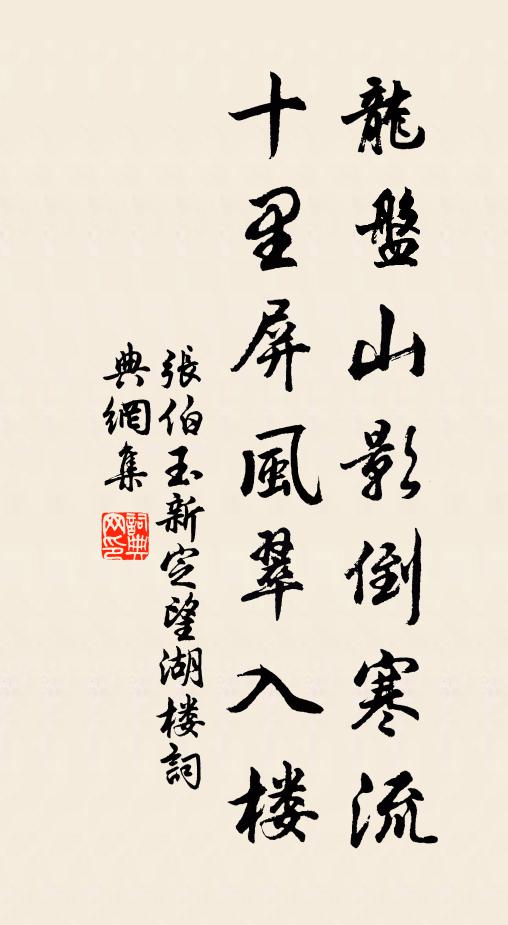 龍盤山影倒寒流
十里屏風翠入楼
張伯玉新定望湖楼詞
典網集
詞典网印